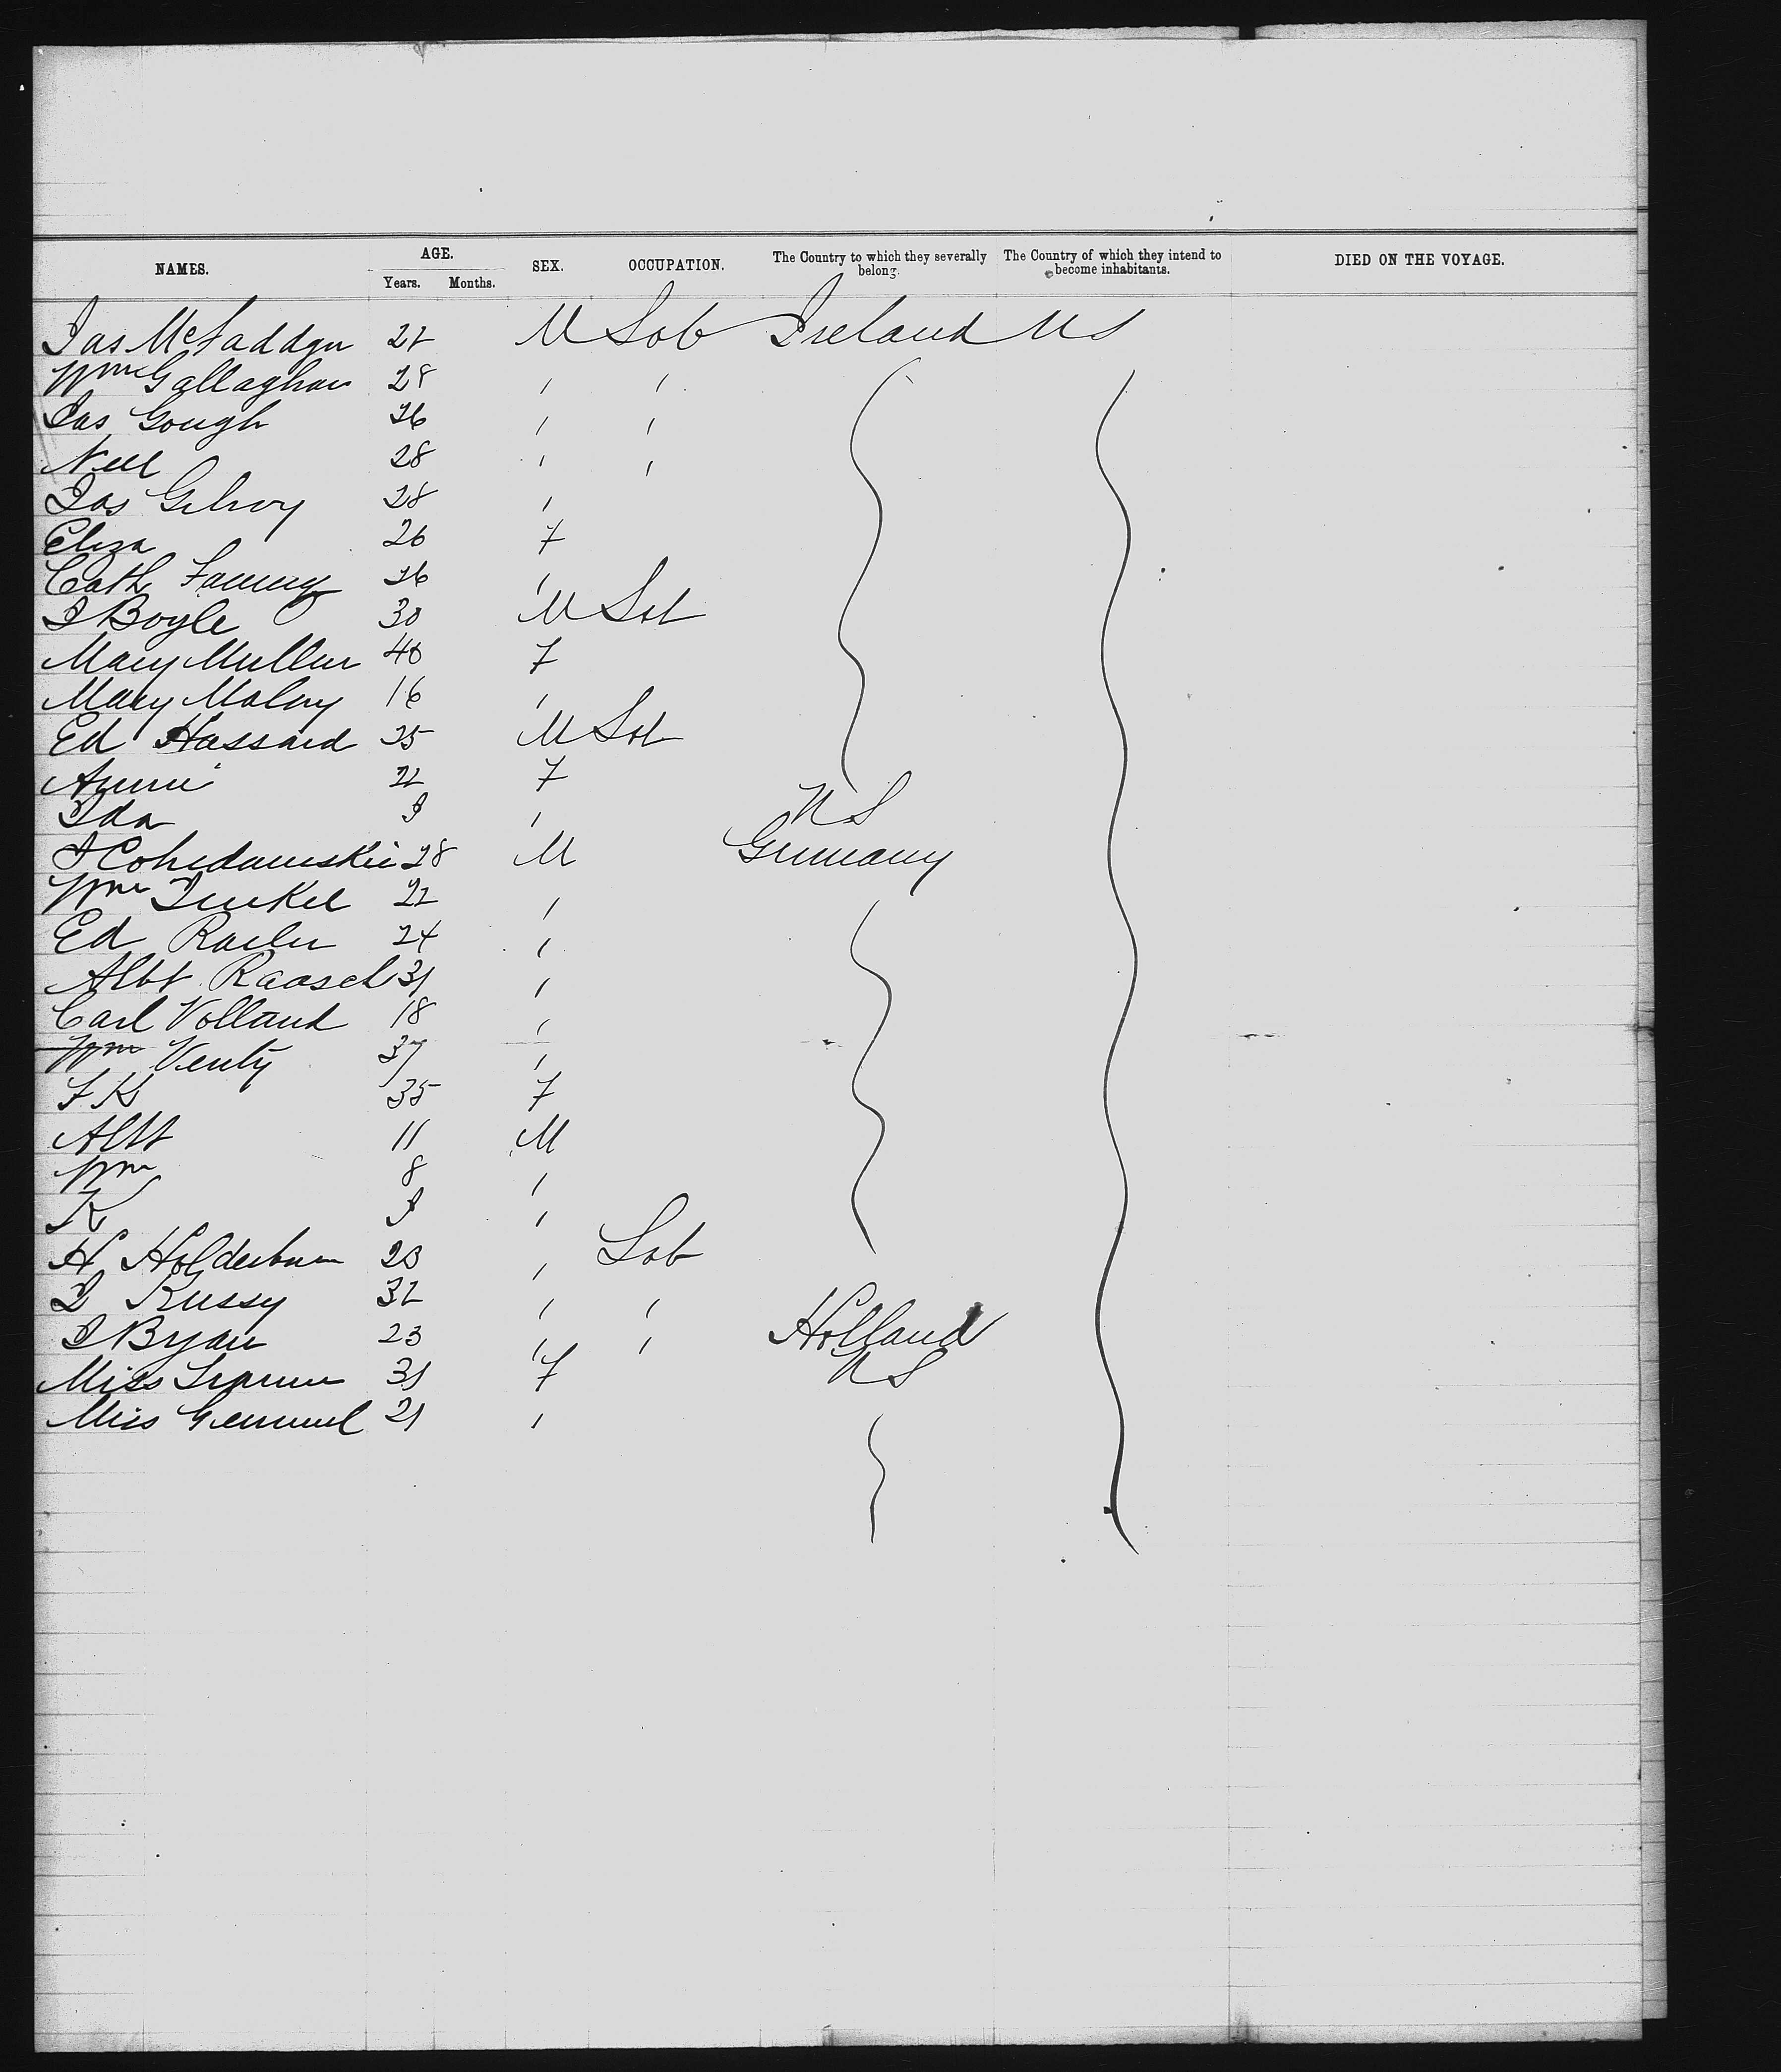 NAMES. AGE. Years. Months. SEX. OCCUPATION. The Country to which they severally belong. The Country of which they intend to become inhabitants. DIED ON THE VOYAGE.
Jas McFadden 22 M Lab Ireland US
Wm Gallagher 28 " "
Jas Gough 26 " "
Neil 28 " "
Jas Gilroy 28 "
Eliza 26 F
Cath 26 "
J Boyle 30 M Lab
Mary Mullen 40 F
Mary Maloy 16 "
Ed Hassard 25 M Lab
Annie 22 F
Ida "  US
28 M Germany
Wm 22 "
Ed 24 "
Albt Raasch 31 "
Carl Volland 18 "
Wm Venty 37 "
F K 35 F
Albt 11 M
Wm 8 "
K "
H 23 " Lab
Russy 32 " "
J Byan 23 " " Holland
Miss 31 F US
Miss 21 "